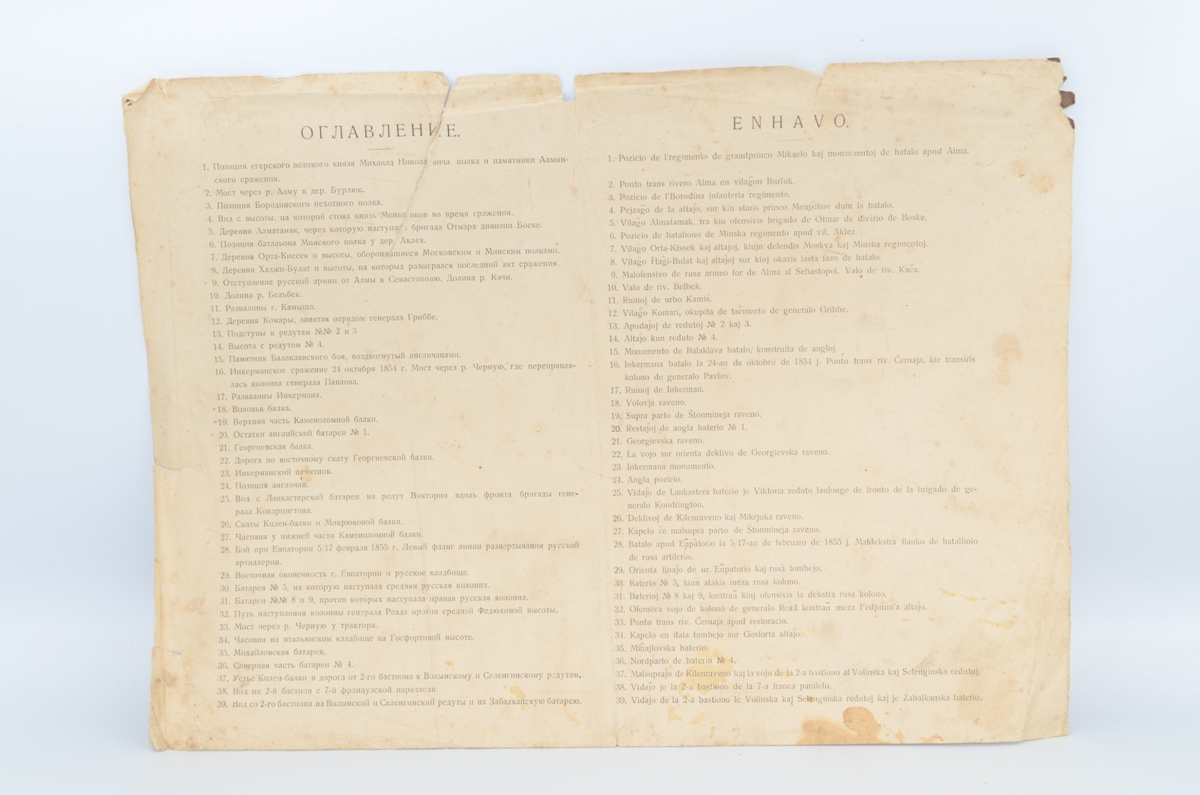 ОГЛАВЛЕНИЕ.
1. Позиция егерского великого князя Михаила Николаевича полка и памятники Алмин-
ского сражения.
2. Мост через р. Алму в дер. Бурлюк.
3. Позиция Бородинского пехотного полка.
4. Вид с высоты, на которой стоял князь Меньшиков во время сражения.
5. Деревня Алматамак, через которую наступала бригада Отмара дивизии Боске.
6. Позиция батальона Минского полка у дер. Аклез.
7. Деревня Орта-Киссек и высоты, оборонявшиеся Московским и Минским полками.
8. Деревня Хаджи-Булат и высоты, на которых разыгрался последний акт сражения.
9. Отступление русской армии от Алмы к Севастополю. Долина р. Качи.
10. Долина р. Бельбек.
11. Развалины г. Камыша.
12. Деревня Комары, занятая отрядом генерала Гриббе.
13. Подступы к редутам №№ 2 и 3
14. Высота с редутом № 4.
15. Памятник Балаклавского боя, воздвигнутый англичанами.
16. Инкерманское сражение 24 октября 1854 г. Мост через р. Черную, где переправля-
лась колонна генерала Павлова.
17. Развалины Инкермана.
18. Воловья балка.
19. Верхняя часть Каменоломной балки.
20. Остатки английской батареи № 1.
21. Георгиевская балка.
22. Дорога по восточному скату Георгиевской балки.
23. Инкерманский памятник.
24. Позиция англичан.
25. Вид с Ланкастерской батареи на редут Виктории вдоль фронта бригады гене-
рала Кондрингтона.
26. Скаты Килен-балки и Микрюковой балки.
27. Часовня у нижней части Каменоломной балки.
28. Бой при Евпатории 5/17 февраля 1855 г. Левый фланг линии развертывания русской
артиллерии.
29. Восточная оконечность г. Евпатории и русское кладбище.
30. Батарея № 5, на которую наступала средняя русская колонна.
31. Батареи №№ 8 и 9, против которых наступала правая русская колонна.
32. Путь наступления колонны генерала Реада против средней Федюхиной высоты.
33. Мост через р. Черную у трактира.
34. Часовня на итальянском кладбище на Госфортовой высоте.
35. Михайловская батарея.
36. Северная часть батареи № 4.
37. Устье Килен-балки и дорога от 2-го бастиона к Волынскому и Селенгинскому редутам.
38. Вид на 2-й бастион с 7-й французской параллели.
39. Вид со 2-го бастиона на Волынский и Селенгинский редуты и на Забалканскую батарею.
ENHAVO.
1. Pozicio de l'regimento de grandprinco Mikaelo kaj monumentoj de batalo apud Alma.
2. Ponto trans rivero Alma en vilaĝon Burluk.
3. Pozicio de l'Borodina infanteria regimento.
4. Pejzaĝo de la altajo, sur kin staris princo Menjŝikov dum la batalo.
5. Vilaĝo Almatamak, tra kiu ofensivis brigado de Otmar de divizio de Boske.
6. Pozicio de bataliono de Minska regimento apud vil. Aklez.
7. Vilaĝo Orta-Kissek kaj altajoj, kiujn defendis Moskva kaj Minska regimentoj.
8. Vilaĝo Haĝi-Bulat kaj altajoj sur kiuj okazis lasta fazo de batalo.
9. Malofensivo de rusa armeo for de Alma al Sebastopol. Valo de riv. Kaĉa.
10. Valo de riv. Belbek.
11. Ruinoj de urbo Kamiŝ.
12. Vilaĝo Komari, okupita de taĉmento de generalo Gribbe.
13. Apudajoj de redutoj № 2 kaj 3.
14. Altajo kun reduto № 4.
15. Monumento de Balaklava batalo, konstruita de angloj.
16. Inkermana batalo la 24-an de oktobro de 1854 j. Ponto trans riv. Ĉernaja, kie transiris
kolono de generalo Pavlov.
17. Ruinoj de Inkerman.
18. Volovja raveno.
19. Supra parto de Ŝtonmineja raveno.
20. Restajoj de angla baterio № 1.
21. Georgievska raveno.
22. La vojo sur orienta deklivo de Georgievska raveno.
23. Inkermana monumento.
24. Angla pozicio.
25. Vidajo de Lankastera baterio je Viktoria reduto laulonge de fronto de la brigado de ge-
neralo Kondrington.
26. Deklivoj de Kilenraveno kaj Mikrjuka raveno.
27. Kapelo ĉe malsupra parto de Ŝtonmineja raveno.
28. Batalo apud Eŭpatorio la 5/17-an de februaro de 1855 j. Maldekstra flanko de batallinio
de rusa artilerio.
29. Orienta finajo de ur. Eŭpatorio kaj rusa tombejo.
30. Baterio № 5, kiun atakis meza rusa kolono.
31. Baterioj № 8 kaj 9, kontraŭ kiuj ofensivis la dekstra rusa kolono.
32. Ofensiva vojo de kolono de generalo Read kontraŭ meza Fedjuhin'a altajo.
33. Ponto trans riv. Ĉernaja apud restoracio.
34. Kapelo en itala tombejo sur Gosforta altajo.
35. Miĥajlovska baterio.
36. Nordparto de baterio № 4.
37. Malsuprajo de Kilenraveno kaj la vojo de la 2-a bastiono al Volinska kaj Selenginska redutoj.
38. Vidajo je la 2-a bastiono de la 7-a franca paralelo.
39. Vidajo de la 2-a bastiono je Volinska kaj Selenginska redutoj kaj je Zabalkanska baterio.